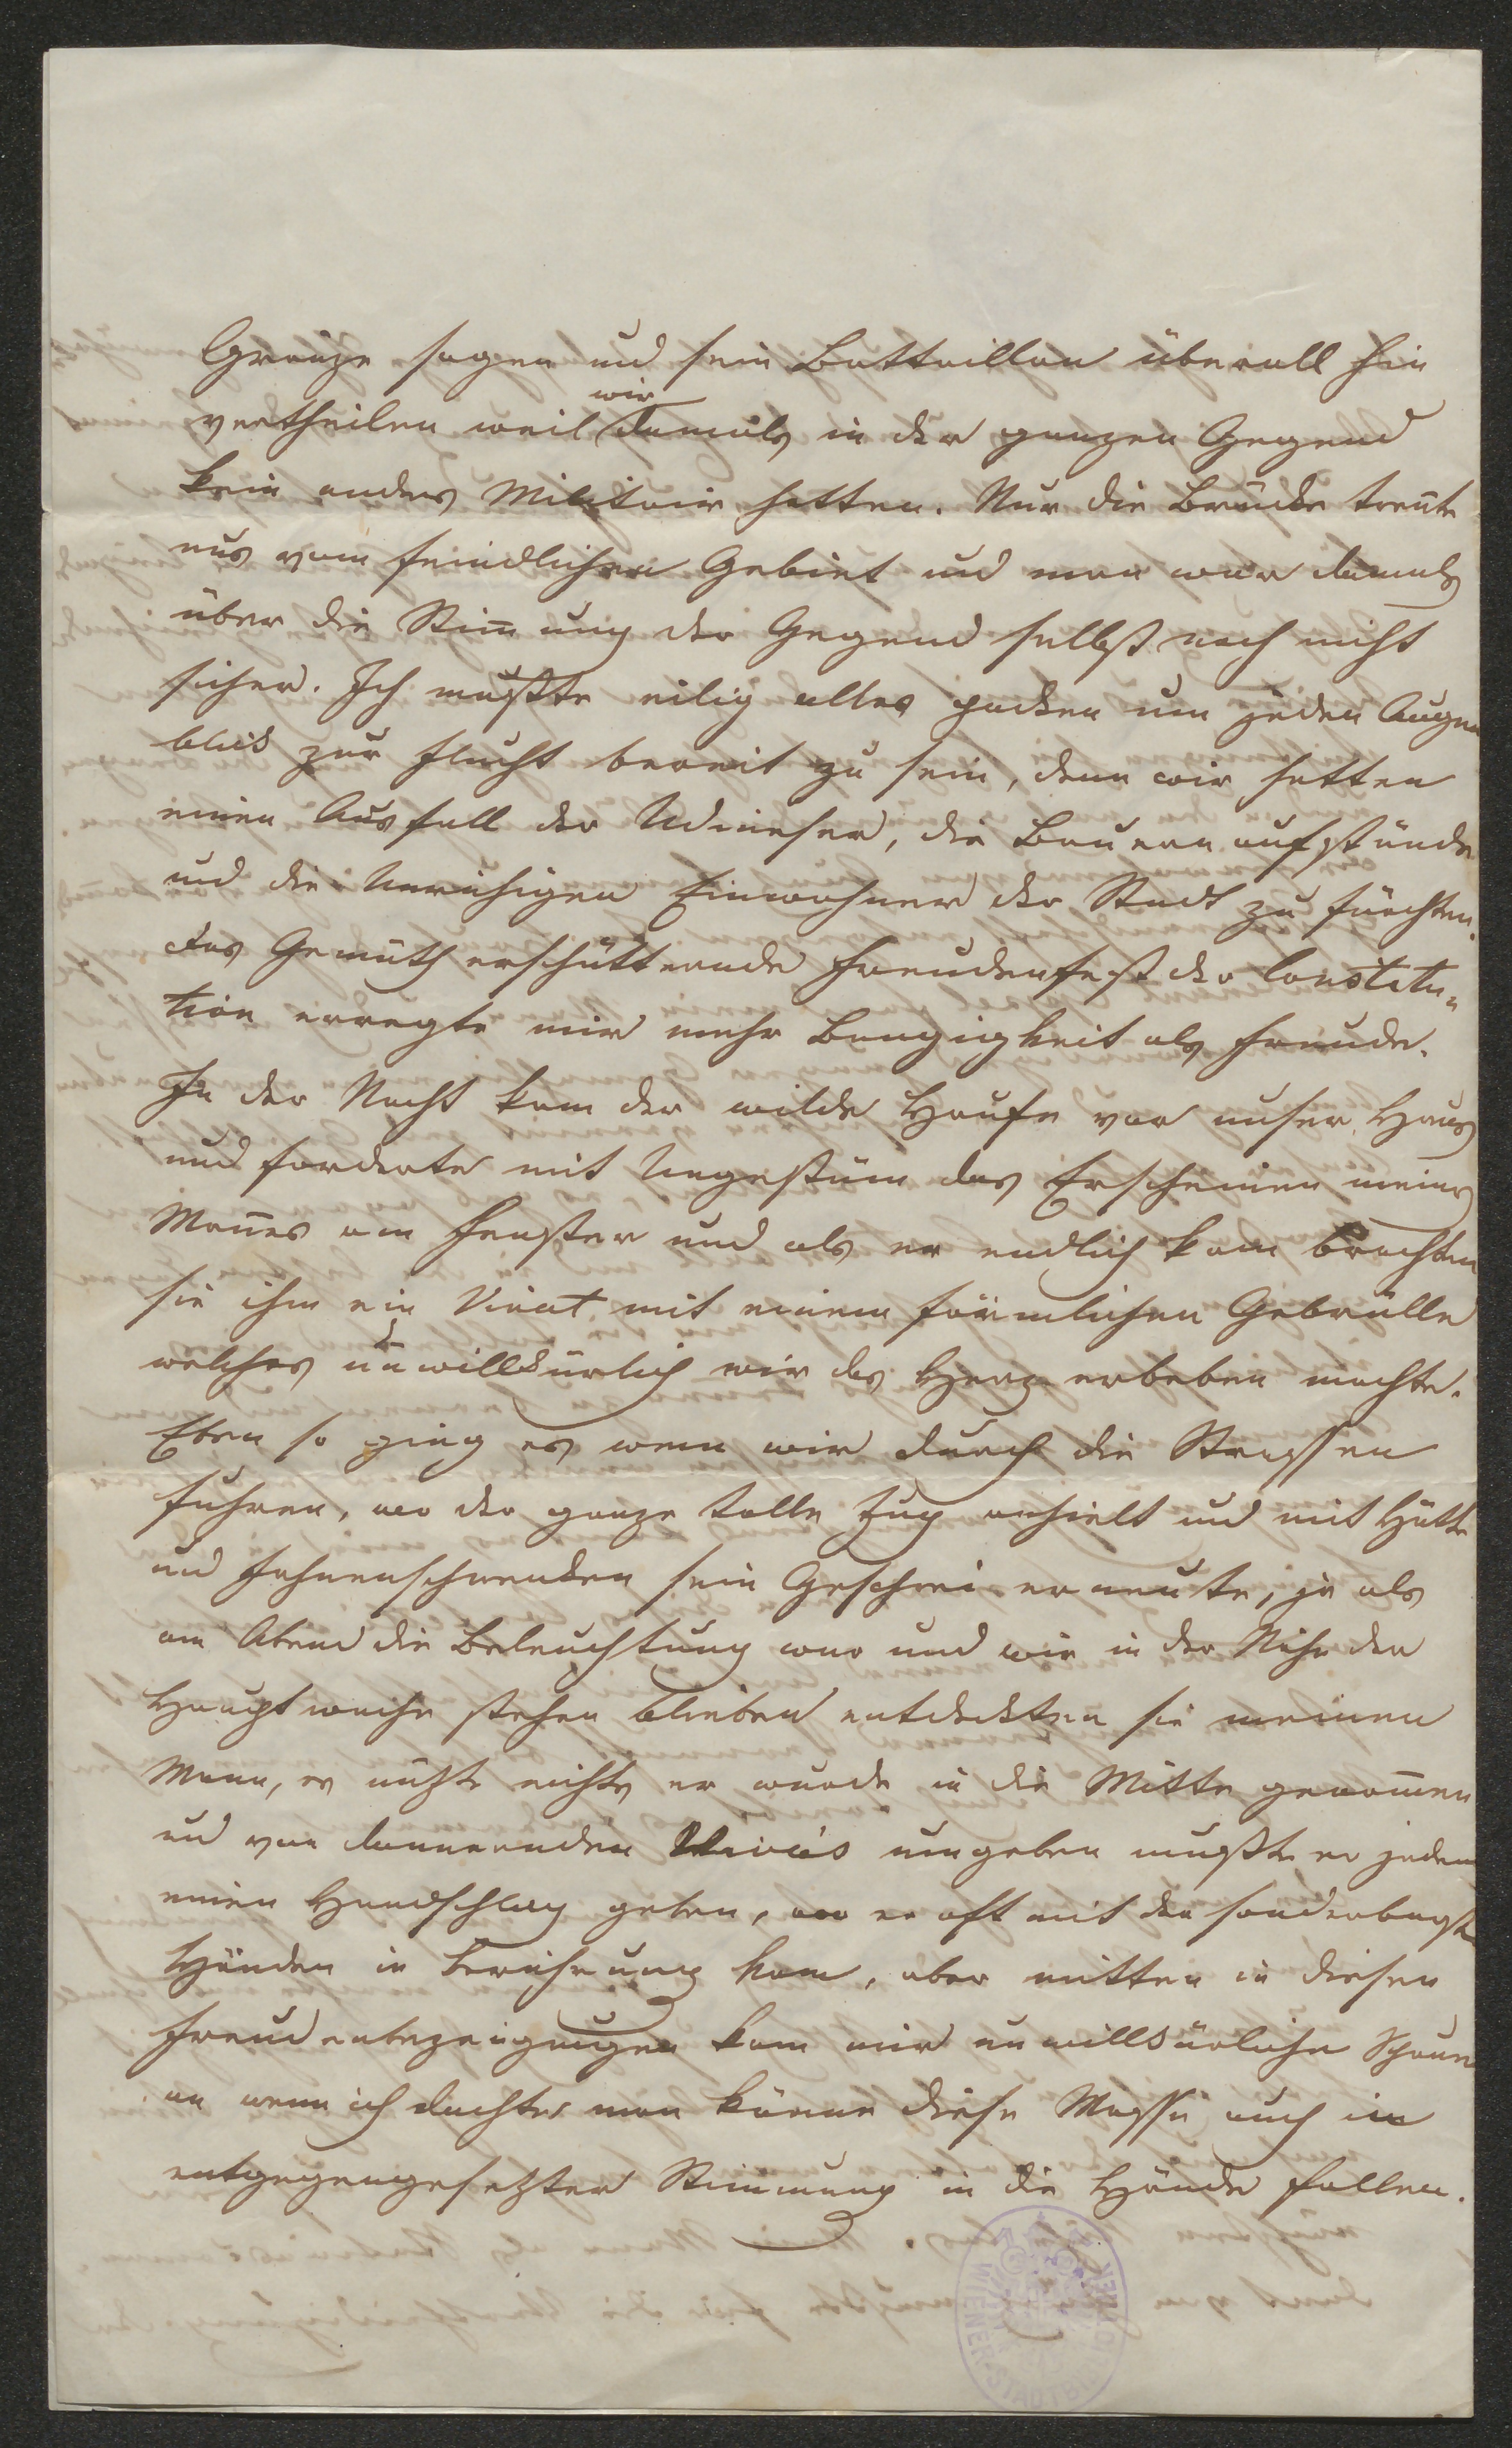 Gränze sagen und sein Battaillon überall hin
vertheilen weil wir damals in der ganzen Gegend
kein andres Militair hatten. Nur die Brücke trennte
uns vom feindlichen Gebiet und man war damals
über die Stimmung der Gegend selbst noch nicht
sicher. Ich mußte eilig alles packen um jeden Augen
blick zur Flucht bereit zu sein, denn wir hatten
einen Ausfall der Udineser, die Bauernaufstände
und die unruhigen Einwohner der Stadt zu fürchten.
das Gemüth erschütternde Freudenfest der Constitu„
tion erregte mir mehr Bangigkeit als Freude.
In der Nacht kam der wilde Haufe vor unser Haus
und forderte mit Ungestüm das Erscheinen meines
Mannes am Fenster und als er endlich kam brachten
sie ihm ein Vivat mit einem förmlichen Gebrülle
welches unwillkürlich mir das Herz erbeben machte.
Eben so ging es wenn wir durch die Strassen
fuhren, wo der ganze tolle Zug anhielt und mit Hütte
und Fahnenschwenken sein Geschrei erneute, ja als
am Abend die Beleuchtung war und wir in der Nähe der
Hauptwache stehen blieben entdeckten sie meinen
Mann, es nützte nichts er wurde in die Mitte genommen
und von donnernden Vivas umgeben mußte er jedem
einen Handschlag geben, wo er oft mit den sonderbarsten
Händen in Berührung kam, aber mitten in diesen
Freudenbezeigungen kam mir unwillkürliche Schauer
an wenn ich dachte man könne diese Masse auch in
entgegengesetzter Stimmung in die Hände fallen.
WIENER STADTBIBLIOTHEK